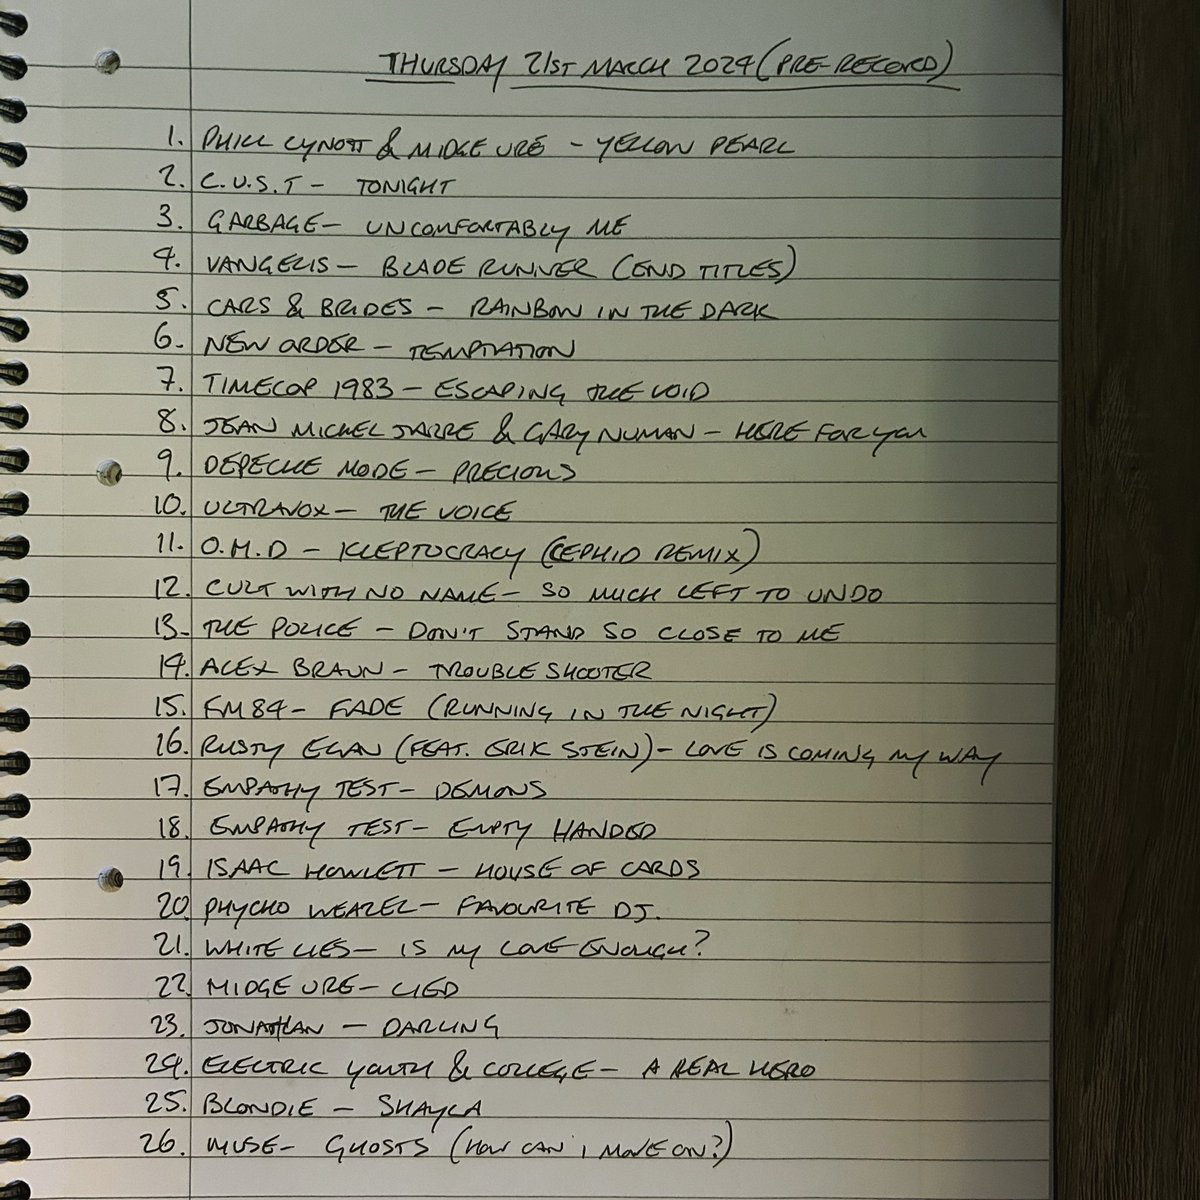 THURSDAY 21ST MARCH 2024 (PRE-RECORD)
1. PHILL LYNOTT & MIDGE URE - YELLOW PEARL
2. C.U.S.T - TONIGHT
3. GARBAGE - UNCOMFORTABLY ME
4. VANGELIS - BLADE RUNNER (END TITLES)
5. CARS & BRIDES - RAINBOW IN THE DARK
6. NEW ORDER - TEMPTATION
7. TIMECOP 1983 - ESCAPING THE VOID
8. JEAN MICHEL JARRE & GARY NUMAN - HERE FOR YOU
9. DEPECHE MODE - PRECIOUS
10. ULTRAVOX - THE VOICE
11. O.M.D - KLEPTOCRACY (CEPHID REMIX)
12. CULT WITH NO NAME - SO MUCH LEFT TO UNDO
13. THE POLICE - DON'T STAND SO CLOSE TO ME
14. ALEX BRAUN - TROUBLESHOOTER
15. FM84 - FADE (RUNNING IN THE NIGHT)
16. RUSTY EGAN (FEAT. ERIK STEIN) - LOVE IS COMING MY WAY
17. EMPATHY TEST - DEMONS
18. EMPATHY TEST - EMPTY HANDED
19. ISAAC HOWLETT - HOUSE OF CARDS
20. PHYCHO WEAZEL - FAVOURITE DJ.
21. WHITE LIES - IS MY LOVE ENOUGH?
22. MIDGE URE - LIED
23. JONATHAN - DARLING
24. ELECTRIC YOUTH & COLLEGE - A REAL HERO
25. BLONDIE - SHAYLA
26. MUSE - GHOSTS (HOW CAN I MOVE ON?)